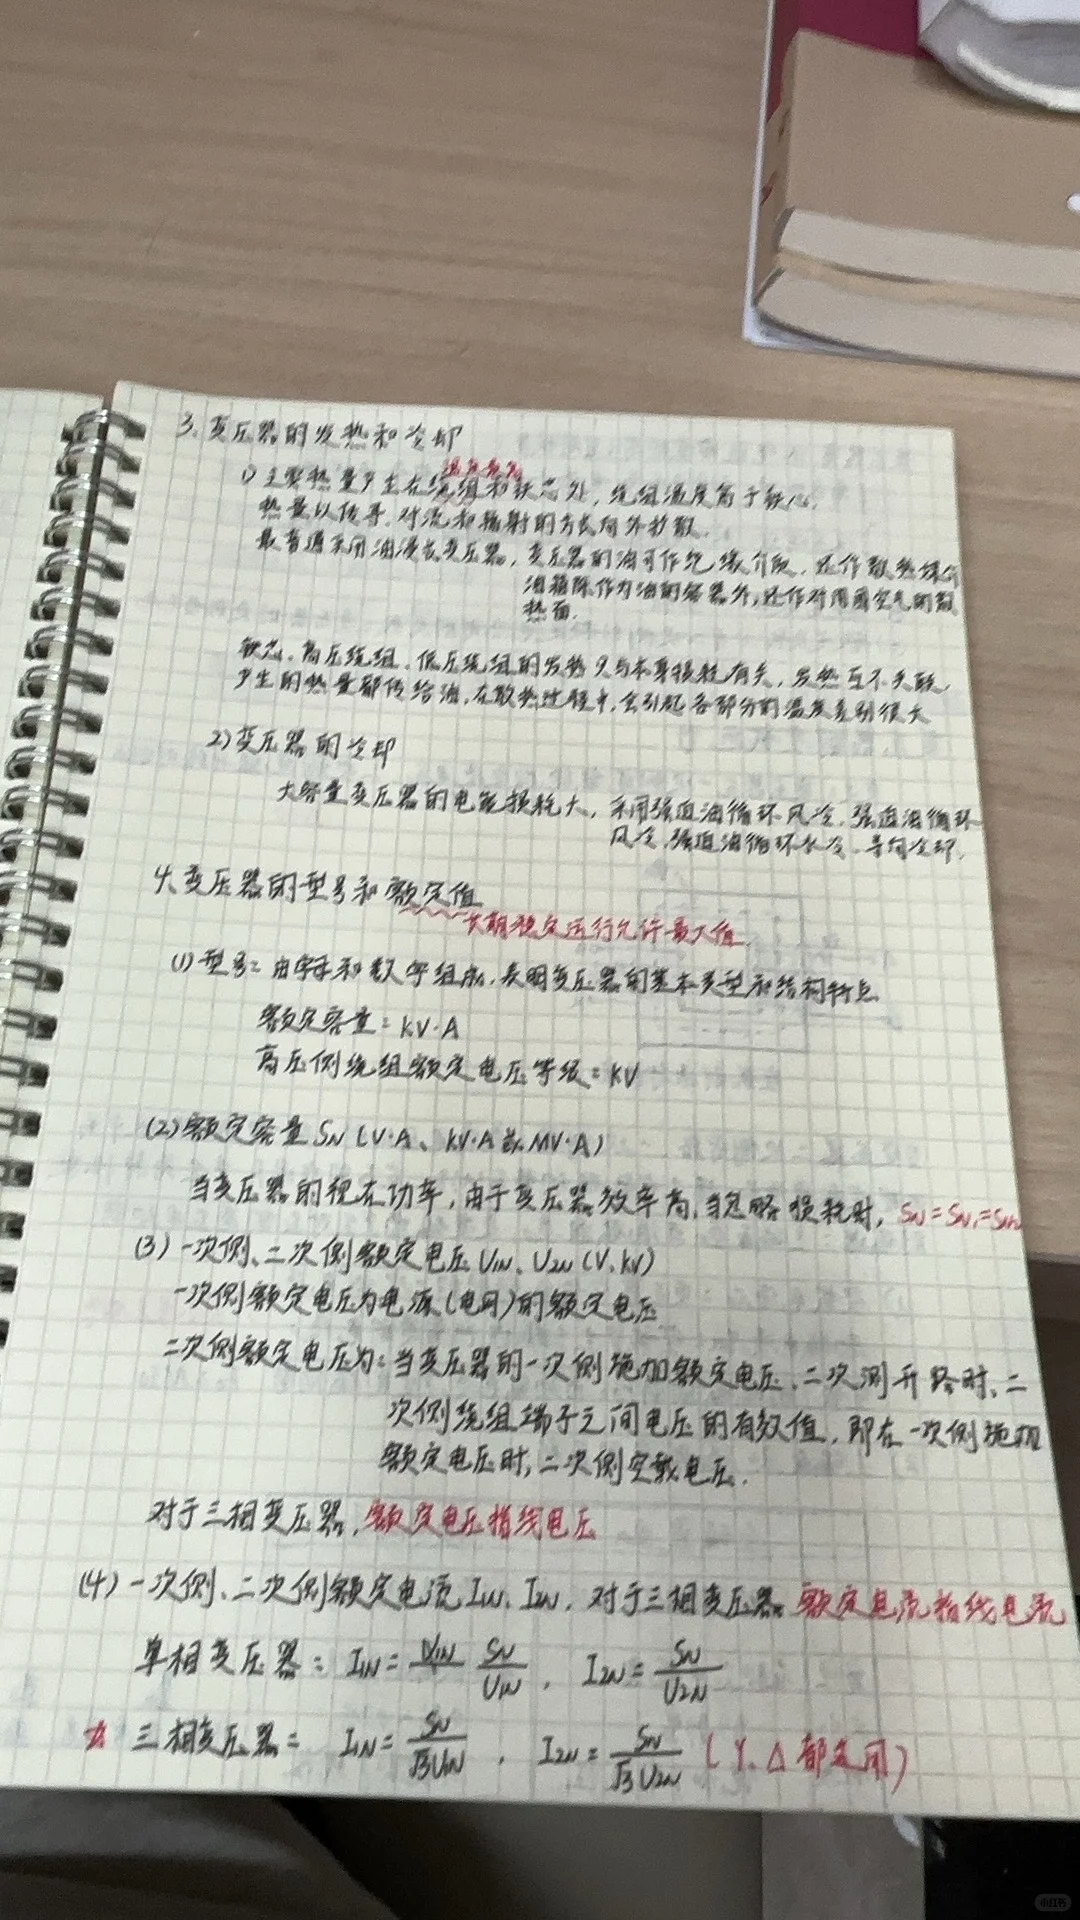 3、变压器的发热和冷却
1) 主要热量产生在绕组和铁芯处，绕组温度高于铁心，
热量以传导、对流和辐射的方式向外扩散.
最普通采用油浸式变压器，变压器的油可作绝缘介质，还作散热媒介
油箱除作为油的容器外，还作对周围空气的散
热面.
铁芯、高压绕组、低压绕组的发热只与本身损耗有关，发热互不关联，
产生的热量都传给油，在散热过程中，会引起各部分的温度差别很大
2) 变压器的冷却
大容量变压器的电能损耗大，采用强迫油循环风冷、强迫油循环
风冷、强迫油循环水冷、导向冷却.
4、变压器的型号和额定值
长期稳定运行允许最大值
(1) 型号: 由字母和数字组成，表明变压器的基本类型和结构特点
额定容量: KV·A
高压侧绕组额定电压等级: KV
(2) 额定容量 SN (V·A、KV·A或MV·A)
当变压器的视在功率，由于变压器效率高，当忽略损耗时，SN=SN1=SN2
(3) 一次侧、二次侧额定电压 U1N、U2N (V、KV)
一次侧额定电压为电源(电网)的额定电压
二次侧额定电压为: 当变压器的一次侧施加额定电压、二次测开路时、二
次侧绕组端子之间电压的有效值，即在一次侧施加
额定电压时，二次侧空载电压.
对于三相变压器，额定电压指线电压
(4) 一次侧、二次侧额定电流 I1N、I2N，对于三相变压器额定电流指线电流
单相变压器: I1N = SN/U1N ，I2N = SN/U2N
三相变压器: I1N = SN/√3U1N ，I2N = SN/√3U2N (Y、Δ都适用)
小红书